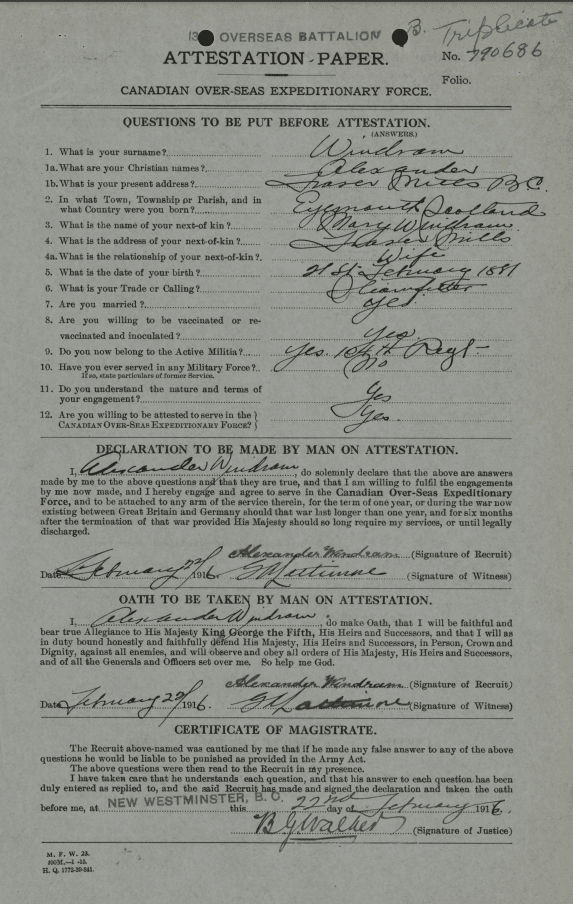 OVERSEAS BATTALION B. Triplicate
ATTESTATION-PAPER. No. 790686
Folio.
CANADIAN OVER-SEAS EXPEDITIONARY FORCE.
QUESTIONS TO BE PUT BEFORE ATTESTATION.
(ANSWERS)
1. What is your surname? Windram
1a. What are your Christian names? Alexander
1b. What is your present address? Fraser Mills B.C.
2. In what Town, Township or Parish, and in
what Country were you born? Eyemouth Scotland
3. What is the name of your next-of kin? Mary Windram
4. What is the address of your next-of-kin? Fraser Mills
4a. What is the relationship of your next-of-kin? Wife
5. What is the date of your birth? 21st February 1881
6. What is your Trade or Calling? Steamfitter
7. Are you married? Yes
8. Are you willing to be vaccinated or re-
vaccinated and inoculated? Yes
9. Do you now belong to the Active Militia? Yes. 104th Regt-
10. Have you ever served in any Military Force? No
If so, state particulars of former Service.
11. Do you understand the nature and terms of
your engagement? Yes
12. Are you willing to be attested to serve in the }
CANADIAN OVER-SEAS EXPEDITIONARY FORCE? } Yes.
DECLARATION TO BE MADE BY MAN ON ATTESTATION.
I, Alexander Windram, do solemnly declare that the above are answers
made by me to the above questions and that they are true, and that I am willing to fulfil the engagements
by me now made, and I hereby engage and agree to serve in the Canadian Over-Seas Expeditionary
Force, and to be attached to any arm of the service therein, for the term of one year, or during the war now
existing between Great Britain and Germany should that war last longer than one year, and for six months
after the termination of that war provided His Majesty should so long require my services, or until legally
discharged.
Alexander Windram (Signature of Recruit)
Date February 22/ 1916 (Signature of Witness)
OATH TO BE TAKEN BY MAN ON ATTESTATION.
I, Alexander Windram, do make Oath, that I will be faithful and
bear true Allegiance to His Majesty King George the Fifth, His Heirs and Successors, and that I will as
in duty bound honestly and faithfully defend His Majesty, His Heirs and Successors, in Person, Crown and
Dignity, against all enemies, and will observe and obey all orders of His Majesty, His Heirs and Successors,
and of all the Generals and Officers set over me. So help me God.
Alexander Windram (Signature of Recruit)
Date February 22/ 1916 (Signature of Witness)
CERTIFICATE OF MAGISTRATE.
The Recruit above-named was cautioned by me that if he made any false answer to any of the above
questions he would be liable to be punished as provided in the Army Act.
The above questions were then read to the Recruit in my presence.
I have taken care that he understands each question, and that his answer to each question has been
duly entered as replied to, and the said Recruit has made and signed the declaration and taken the oath
before me, at NEW WESTMINSTER, B. C. this 22nd day of February 1916.
(Signature of Justice)
M. F. W. 23.
H. Q. 1772-39-841.